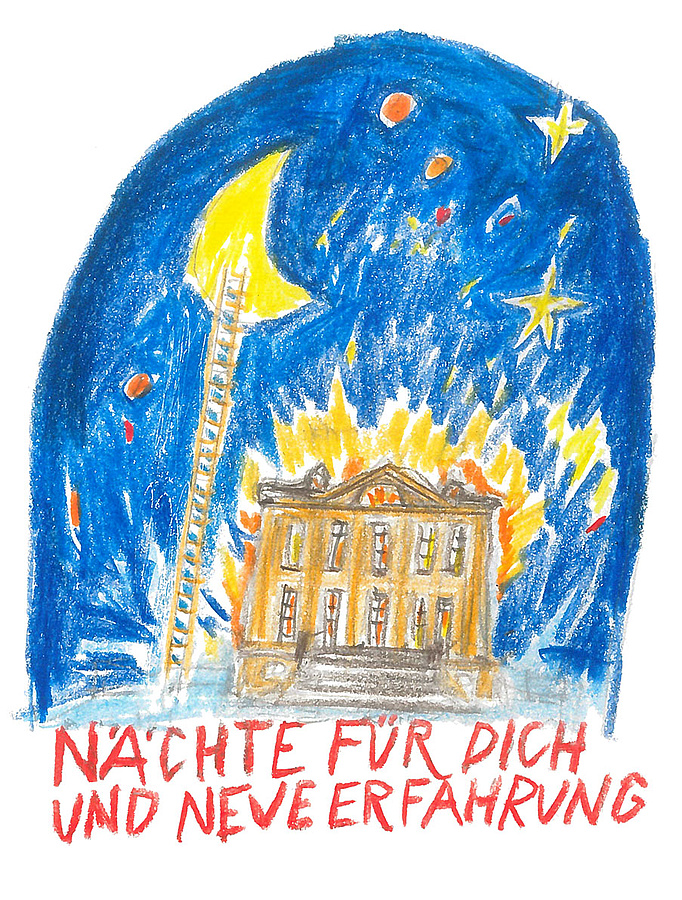 NÄCHTE FÜR DICH
UND NEUE ERFAHRUNG